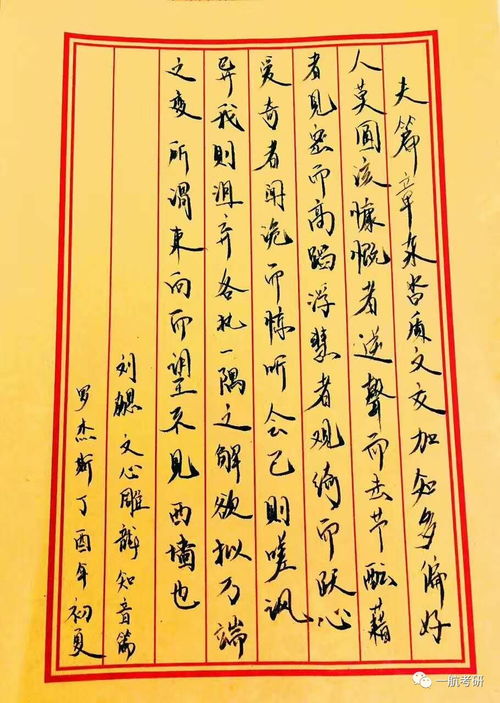 夫篇章杂沓质文交加知多偏好
人莫圓该慷慨者逆聲而击节酝藉
者见密而高蹈浮慧者观绮而跃心
爱奇者闻诡而惊听会己则嗟讽
异我则沮弃各执一隅之解欲拟万端
之变所谓東向而望不见西墙也
刘勰文心雕龍知音篇
罗杰斯丁酉年初夏
一航考研